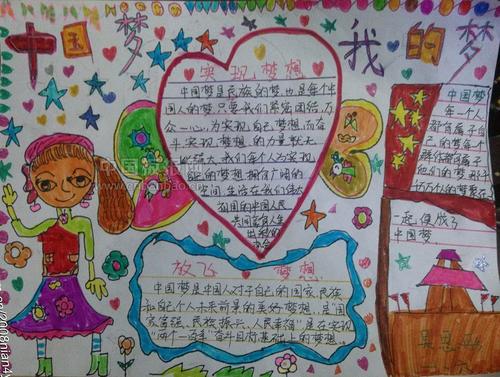 中国梦 我的梦
实现梦想
中国梦是民族的梦,也是每个中
国人的梦。只要我们紧密团结,万
众一心,为实现自己梦想而奋
斗,实现梦想的力量就无
比强大,我们每个人为实现
自己的梦想拥有广阔的
空间。生活在我们伟大
祖国的中国人民
共同享有人生
出彩的
机会
放飞梦想
中国梦是中国人对于自己的国家、民族
和自己个人未来前景的美好梦想,是"国
家富强、民族振兴、人民幸福"是在实现
"两个一百年"奋斗目标基础上的梦想。
中国梦,
每一个人
都有属于自
己的梦每个
他们的梦
万万个的梦聚在
一起便成了
中国梦